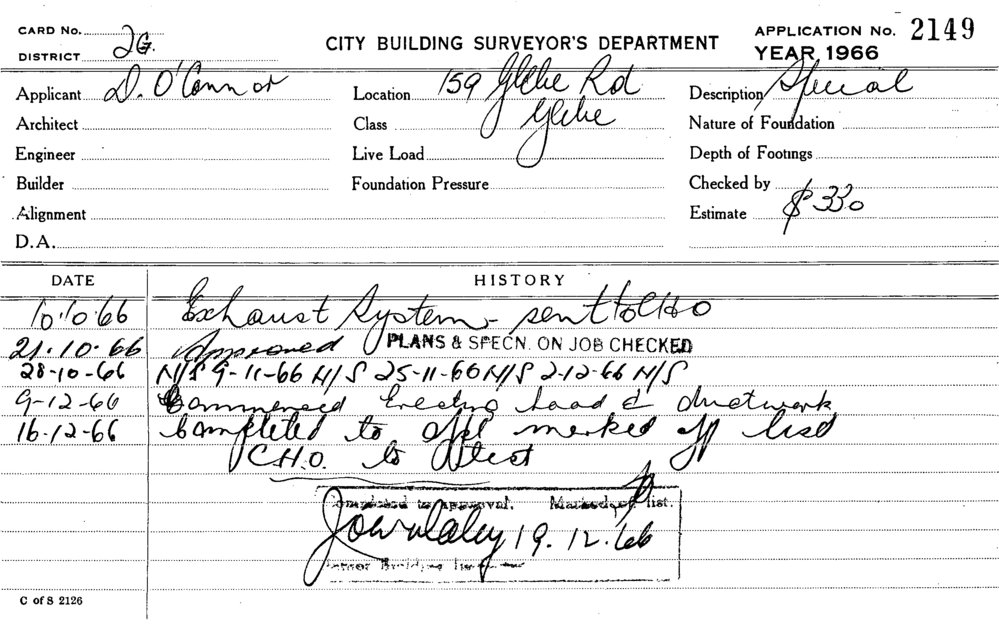 CARD No.
CITY BUILDING SURVEYOR'S DEPARTMENT
APPLICATION No. 2149
DISTRICT 2G.
YEAR 1966
Applicant D. O'Connor
Location 159 Glebe Rd
Description Special
Architect
Class Glebe
Nature of Foundation
Engineer
Live Load
Depth of Footings
Builder
Foundation Pressure
Checked by
Alignment
Estimate $ 330
D.A.
DATE HISTORY
10.10.66 Exhaust System - sent to CHO
21.10.66 Approved PLANS & SPECN. ON JOB CHECKED
28-10-66 N/S 9-11-66 N/S 25-11-66 N/S 2-12-66 N/S
9-12-66 Commenced Erecting hood & ductwork
16-12-66 Completed to appl marked off list
C.H.O. to test
Completed to approval. Marked off list.
19.12.66
C of S 2126